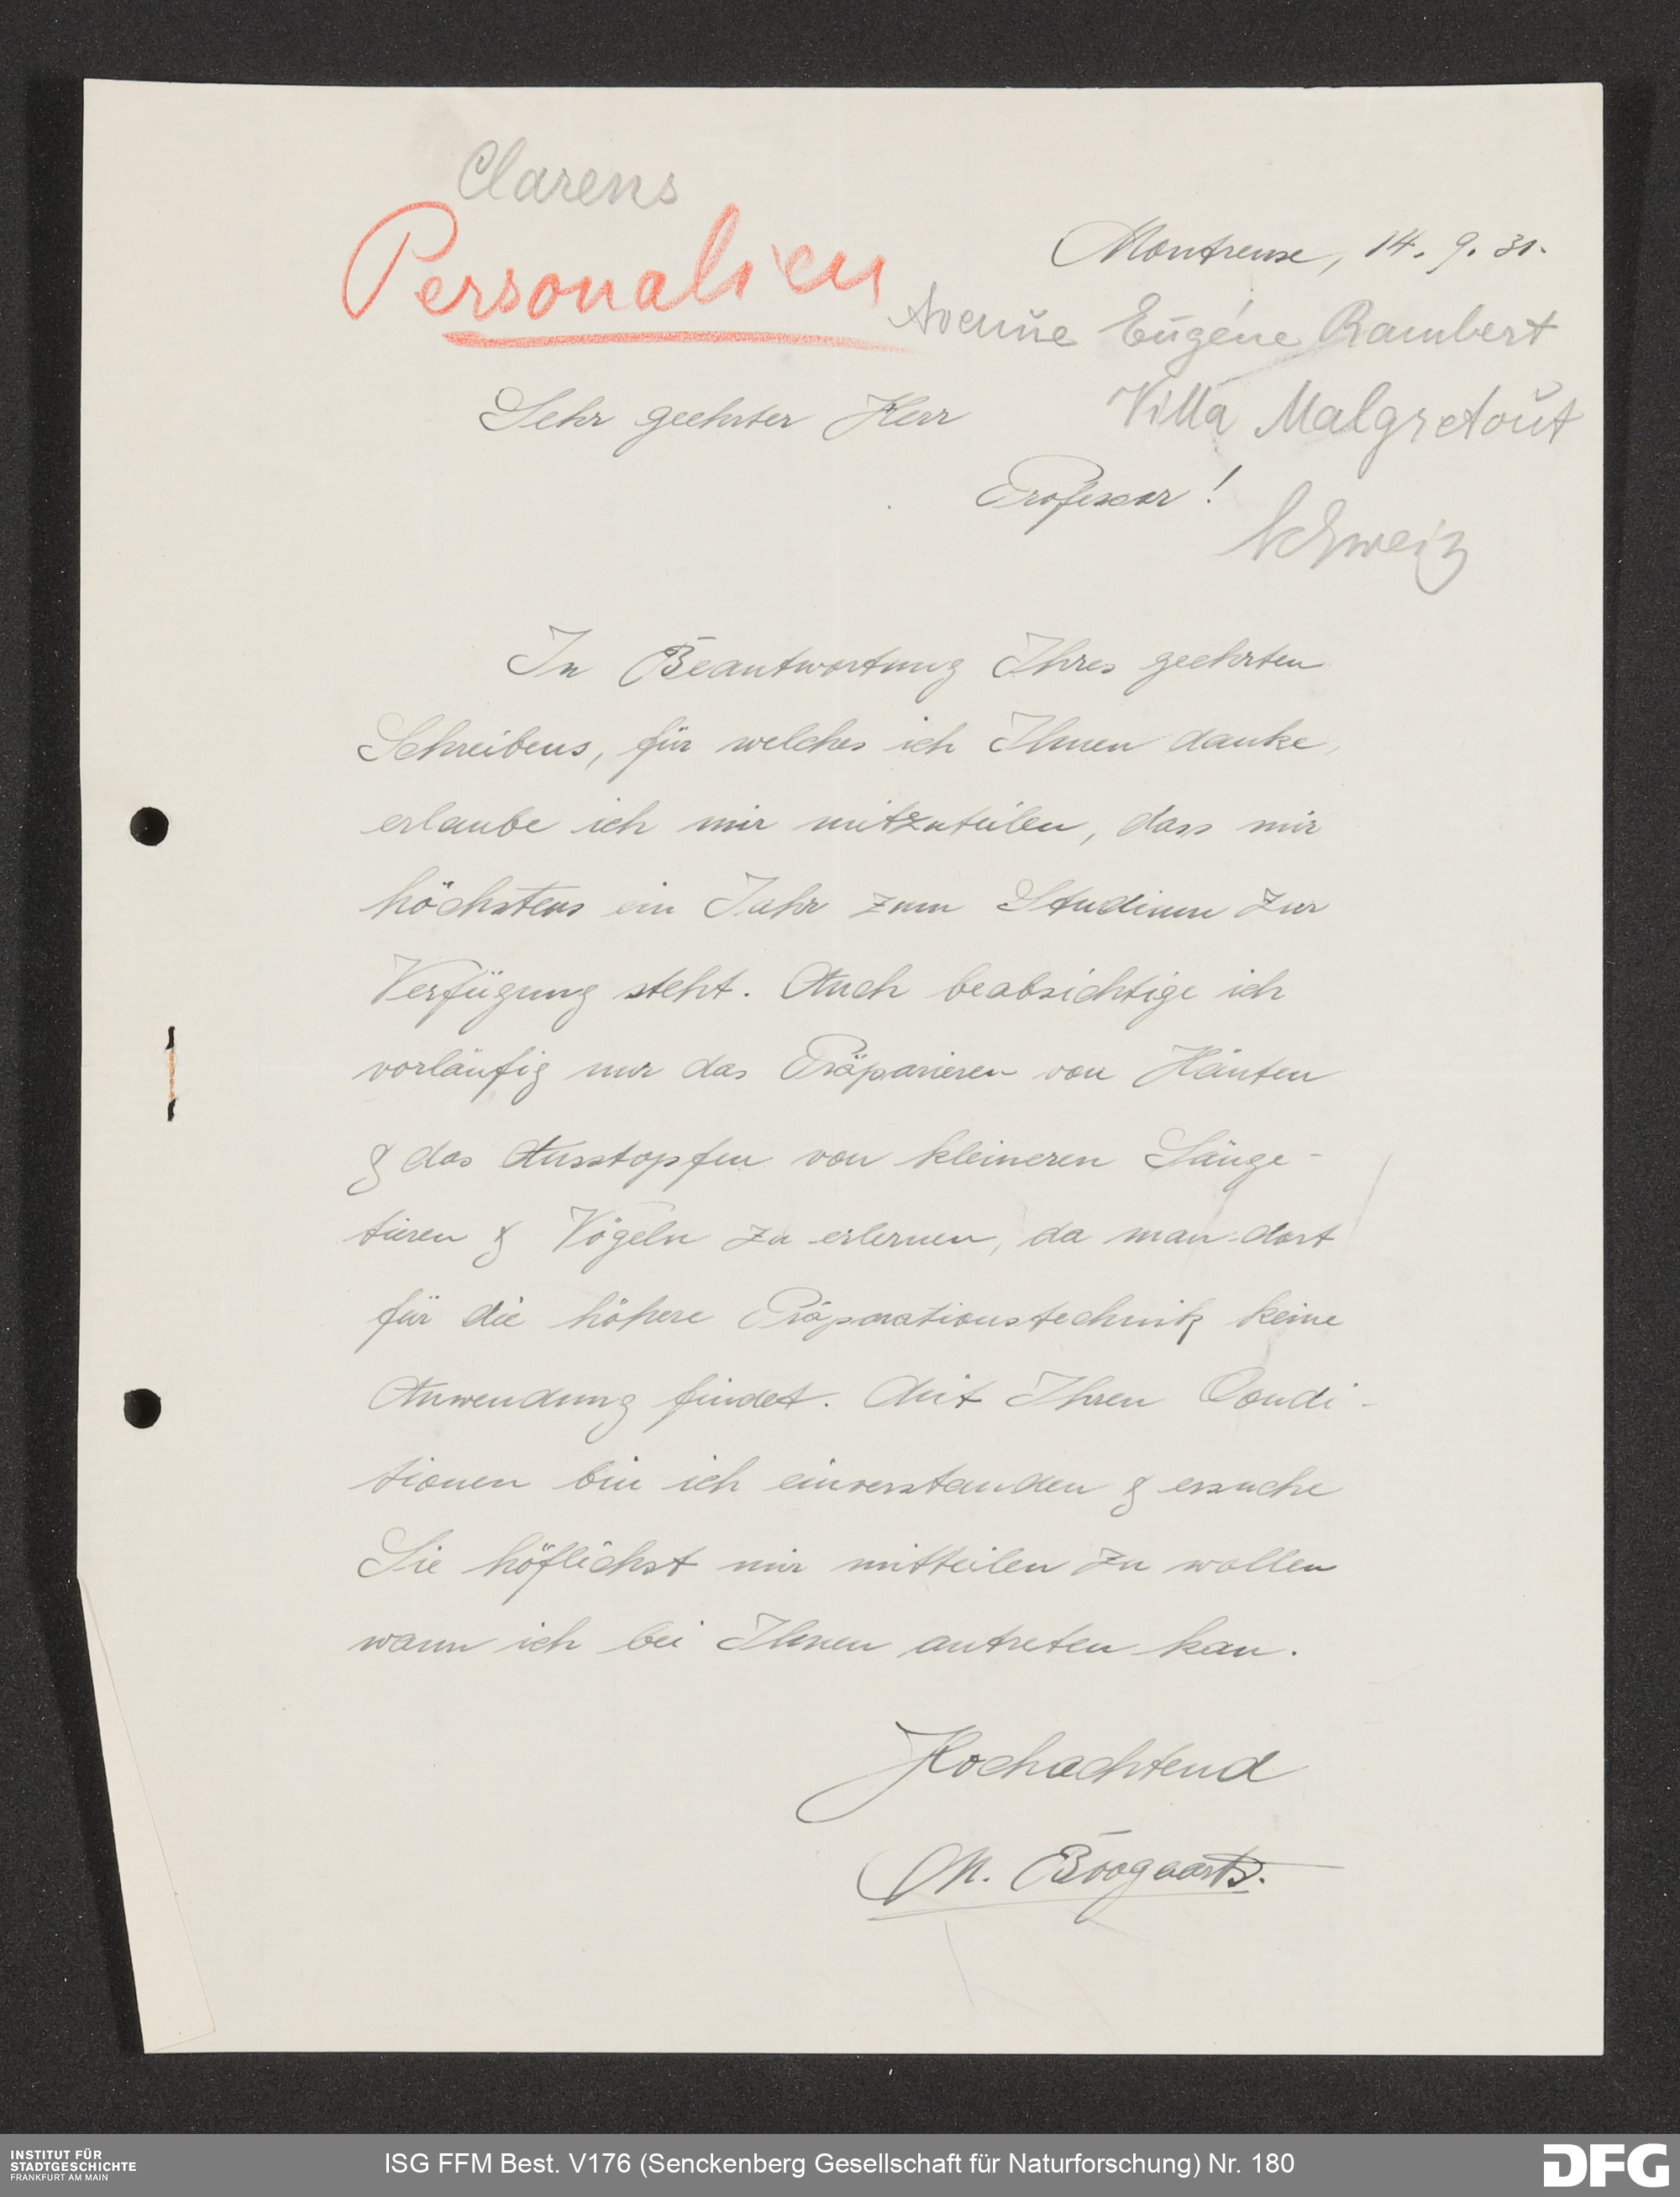 Clarens
Personalien
Montreux, 14. 9. 31.
Avenue Eugéne Rambert
Sehr geehrter Herr
Villa Malgretout
Professor!
Schweiz
In Beantwortung Ihres geehrten
Schreibens, für welches ich Ihnen danke,
erlaube ich mir mitzuteilen, dass mir
höchstens ein Jahr zum Studium zur
Verfügung steht. Auch beabsichtige ich
vorläufig nur das Präparieren von Häuten
& das Ausstopfen von kleineren Säuge-
tieren & Vögeln zu erlernen, da man dort
für die höhere Präparationstechnik keine
Anwendung findet. Mit Ihren Condi-
tionen bin ich einverstanden & ersuche
Sie höflichst mir mitteilen zu wollen
wann ich bei Ihnen antreten kan.
Hochachtend
M. Boogaarts.
INSTITUT FÜR
STADTGESCHICHTE
FRANKFURT AM MAIN
ISG FFM Best. V176 (Senckenberg Gesellschaft für Naturforschung) Nr. 180
DFG